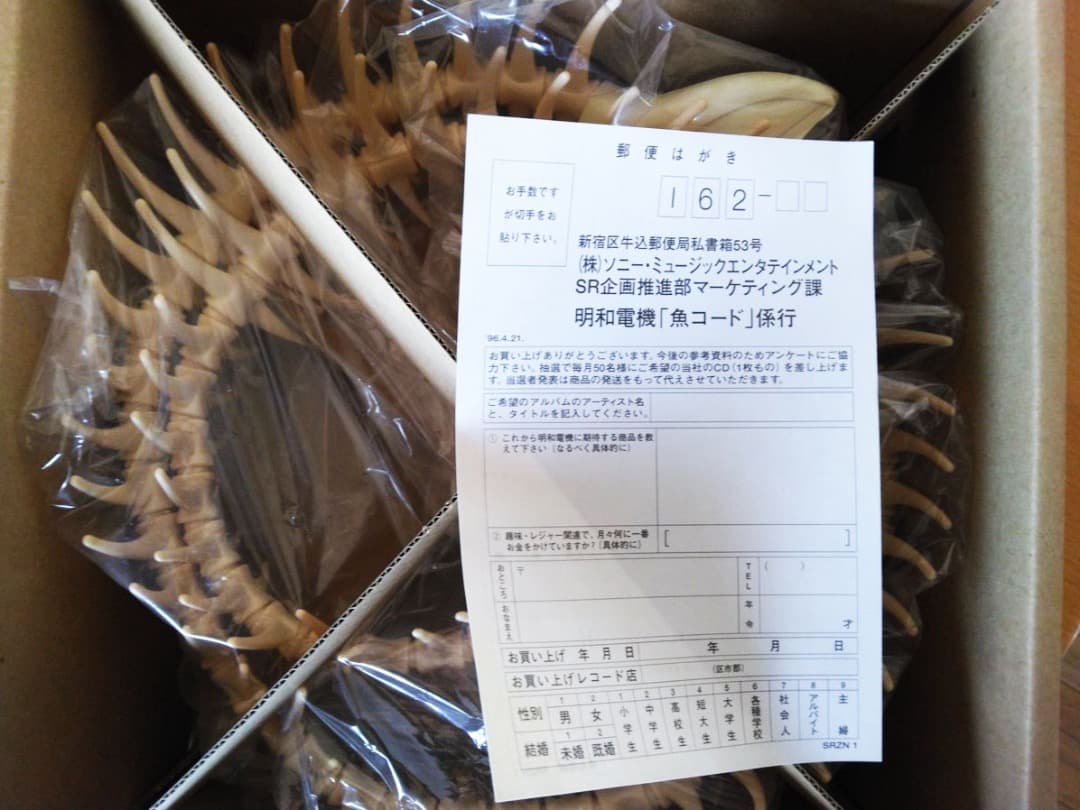 郵便はがき
お手数です
が切手をお
貼り下さい。
162-
新宿区牛込郵便局私書箱53号
(株)ソニー・ミュージックエンタテインメント
SR企画推進部マーケティング課
明和電機「魚コード」係行
96.4.21.
お買い上げありがとうございます。今後の参考資料のためアンケートにご協
力下さい。抽選で毎月50名様にご希望の当社のCD(1枚もの)を差し上げま
す。当選者発表は商品の発送をもって代えさせていただきます。
ご希望のアルバムのアーティスト名
と、タイトルを記入してください。
① これから明和電機に期待する商品を教
えて下さい(なるべく具体的に)
② 趣味・レジャー関連で、月々何に一番
お金をかけていますか?(具体的に)
[ ]
おところ
〒
TEL
( )
おなまえ
年令
才
お買い上げ 年 月 日
年 月 日
お買い上げレコード店
(区市郡)
性別
1 男
2 女
結婚
1 未婚
2 既婚
1 小学生
2 中学生
3 高校生
4 短大生
5 大学生
6 各種学校
7 社会人
8 アルバイト
9 主婦
SRZN 1